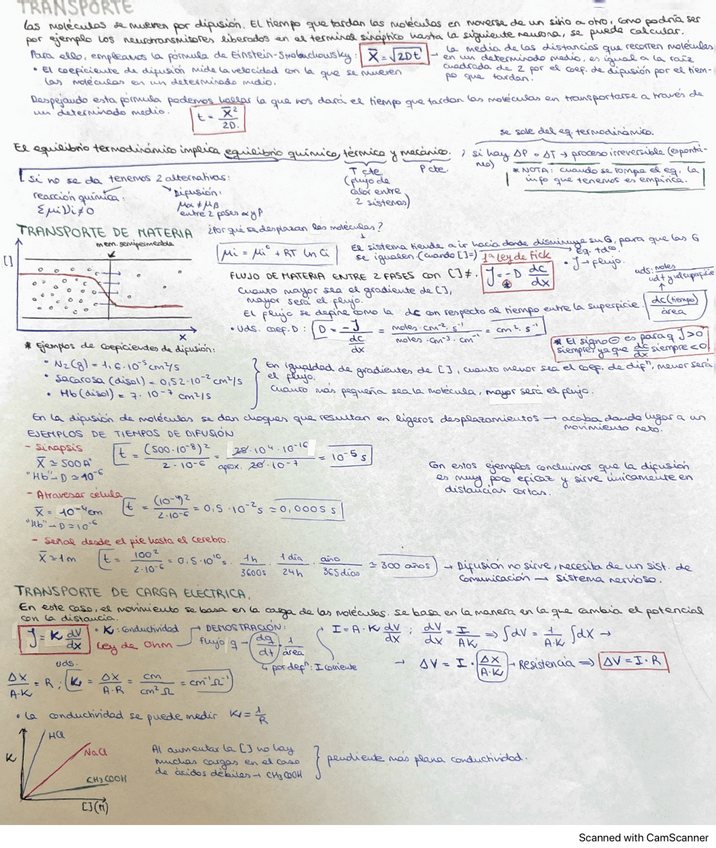 TRANSPORTE
Las moléculas se mueven por difusión. El tiempo que tardan las moléculas en moverse de un sitio a otro, como podría ser
por ejemplo los neurotransmisores liberados en el terminal sináptico hasta la siguiente neurona, se puede calcular.
Para ello, empleamos la fórmula de Einstein-Smoluchowsky: X̄ = √2Dt → La media de las distancias que recorren moléculas
en un determinado medio, es igual a la raíz
cuadrada de 2 por el coef. de difusión por el tiem-
po que tardan.
• El coeficiente de difusión mide la velocidad con la que se mueven
las moléculas en un determinado medio.
Despejando esta fórmula podemos hallar la que nos dará el tiempo que tardan las moléculas en transportarse a través de
un determinado medio. t = X̄²/2D
se sale del eq. termodinámico.
El equilibrio termodinámico implica equilibrio químico, térmico y mecánico. ; si hay ΔP = ΔT → proceso irreversible (espontá-
neo)
T cte (flujo de calor entre 2 sistemas)
P cte
* NOTA: cuando se rompa el eq. la
info que tenemos es empírica.
Si no se da tenemos 2 alternativas:
reacción química: Σμiνi ≠ 0
Difusión: μα ≠ μβ
entre 2 fases α y β
TRANSPORTE DE MATERIA
¿Por qué se desplazan las moléculas?
mem semipermeable
[ ]
x
μi = μi° + RT ln Ci
El sistema tiende a ir hacia donde disminuye su G, para que las G
se igualen (cuando [ ]=)
1ª Ley de Fick
J = -D dc/dx
• J → flujo.
FLUJO DE MATERIA ENTRE 2 FASES CON [ ] ≠.
Cuanto mayor sea el gradiente de [ ],
mayor será el flujo.
El flujo se define como la dc con respecto al tiempo entre la superficie.
dc (tiempo)/área
• Uds. coef. D: D = -J/(dc/dx) = moles·cm⁻²·s⁻¹/moles·cm⁻³·cm⁻¹ = cm²·s⁻¹
* El signo ⊖ es para q J>0
siempre, ya que dc/dx siempre <0
* Ejemplos de coeficientes de difusión:
• N₂(g) = 1,6·10⁻⁵ cm²/s
• Sacarosa (disol) = 0,52·10⁻² cm²/s
• Hb (disol) = 7·10⁻⁷ cm²/s
En igualdad de gradientes de [ ], cuanto menor sea el coef. de difⁿ, menor será
el flujo.
Cuanto más pequeña sea la molécula, mayor será el flujo.
En la difusión de moléculas se dan choques que resultan en ligeros desplazamientos → acaba dando lugar a un
movimiento neto.
EJEMPLOS DE TIEMPOS DE DIFUSIÓN
- Sinapsis
X̄ ≃ 500 A°
"Hb" → D ≃ 10⁻⁶
t = (500·10⁻⁸)²/2·10⁻⁶ = 20·10⁴·10⁻¹⁶/aprox. 20·10⁻⁷ = 10⁻⁵ s
Con estos ejemplos concluimos que la difusión
es muy poco eficaz y sirve únicamente en
distancias cortas.
- Atravesar célula
X̄ = 10⁻⁴ cm
"Hb" → D = 10⁻⁶
t = (10⁻⁴)²/2·10⁻⁶ = 0,5·10⁻² s = 0,0005 s
- Señal desde el pie hasta el cerebro.
X̄ ≃ 1m
t = 100²/2·10⁻⁶ = 0,5·10¹⁰ s · 1h/3600s · 1 día/24h · año/365 días ≃ 300 años → Difusión no sirve, necesita de un sist. de
comunicación → sistema nervioso.
TRANSPORTE DE CARGA ELECTRICA.
En este caso, el movimiento se basa en la carga de las moléculas. Se basa en la manera en la que cambia el potencial
con la distancia.
J = K dV/dx
• K: conductividad
Ley de Ohm
→ DEMOSTRACIÓN:
flujo q → (dq/dt) 1/área
↳ por defⁿ: I corriente
I = A·K dV/dx ; dV/dx = I/AK ⇒ ∫dV = I/A·K ∫dx →
→ ΔV = I · (Δx/A·K) → Resistencia ⇒ ΔV = I·R
uds.
Δx/A·K = R ; K = Δx/A·R = cm/cm²Ω = cm⁻¹Ω⁻¹
• La conductividad se puede medir K = 1/R
K
HCl
NaCl
CH₃COOH
[ ](M)
Al aumentar la [ ] no hay
muchas cargas en el caso
de ácidos débiles → CH₃COOH
pendiente más plana conductividad.
Scanned with CamScanner